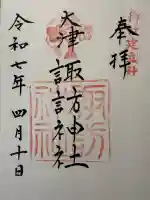 奉拝
大津諏訪神社
令和七年四月十日